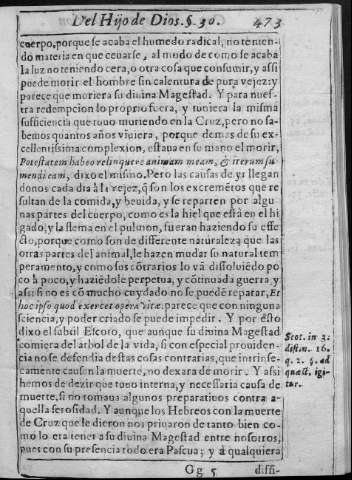 Del Hijo de Dios. §. 30. 473
cuerpo, porque se acaba el humedo radical, no tenien-
do materia en que ceuarse, al modo de como se acaba
la luz no teniendo cera, o otra cosa que consumir, y assi
puede morir el hombre sin calentura de pura vejez: y
parece que moriera su diuina Magestad. Y para nues-
tra redempcion lo proprio fuera, y tuuiera la misma
sufficiencia que touo muriendo en la Cruz, pero no sa-
bemos quantos años viuiera, porque demas de su ex-
cellentissima complexion, estaua en su mano el morir,
Potestatem habeo relinquere animam meam, & iterum su-
mendi eam, dixo el mismo. Pero las causas de yr llegan
donos cada dia à la vejez, q̃ son los excremẽtos que re
sultan de la comida, y beuida, y se reparten por algu-
nas partes del cuerpo, como es la hiel que està en el hi
gado, y la flema en el pulmon, fueran haziendo su effe
cto, porque como son de differente naturaleza que las
otras partes del animal, le hazen mudar su natural tem
peramento, y como sus cõtrarios lo vã dissoluiẽdo po
co à poco, y haziẽdole perpetua, y cõtinuada guerra, y
assi si no es cõ mucho cuydado no se puede reparar, Et
hoc ipso quod exercet opera vitæ: parece que con ninguna
sciencia, y poder criado se puede impedir. Y por ésto
dixo el subtil Escoto, que aunque su diuina Magestad
comiera del arbol de la vida, si con especial prouiden
cia no se defendia destas cosas contrarias, que intrinse-
camente causan la muerte, no dexara de morir. Y assi
hemos de dezir que tuuo interna, y necessaria causa de
muerte, si no tomaua algunos preparatiuos contra a-
quella serosidad. Y aunque los Hebreos con la muerte
de Cruz que le dieron nos priuaron de tanto bien co-
mo lo era tener a su diuina Magestad entre nosotros,
pues con su presencia todo era Pascua; y à qualquiera
Gg 5 diffi-
Scot. in 3.
distin. 16.
q. 2. §. ad
quæst. igi-
tur.